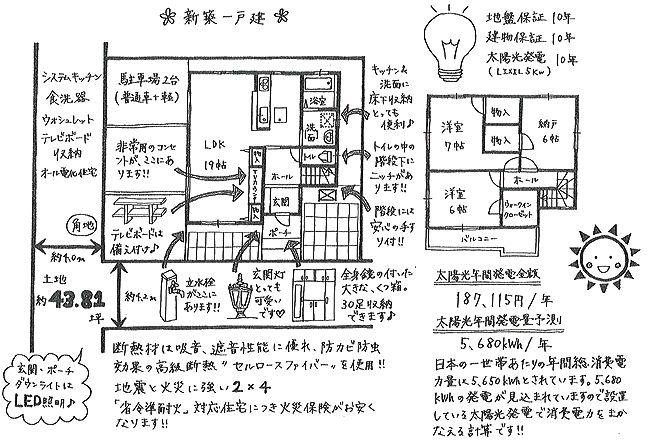 新築一戸建
地盤保証 10年
建物保証 10年
太陽光発電 10年
(LIXIL 5Kw)
システムキッチン
食洗器
ウォシュレット
テレビボード
収納
オール電化住宅
駐車場2台
(普通車+軽)
非常用のコンセ
ントが、ここにあ
ります!!
テレビボードは
備え付け♪
LDK
19帖
浴室
洗面
トイレ
物入
ホール
玄関
物入
ポーチ
キッチン&
洗面に
床下収納
とっても
便利♪
トイレの中の
階段下に
ニッチがあ
ります!!
階段には
安心の手す
り付!!
洋室
7帖
物入
物入
納戸
6帖
洋室
6帖
ホール
ウォークイン
クローゼット
バルコニー
角地
約6.0m
約4.2m
土地
約43.81
坪
立水栓
がここに
あります!!
玄関灯
とっても
可愛い
です♡
全身鏡の付いた
大きな、くつ箱。
30足収納
できます♪
太陽光年間発電金額
187,115円/年
太陽光年間発電量予測
5,680kWh/年
日本の一世帯あたりの年間総消費電
力量は5,650kWhとされています。5,680
kWhの発電が見込まれていますので設置
している太陽光発電で消費電力をまか
なえる計算です!!
玄関・ポーチ
ダウンライトは
LED照明♪
断熱材は吸音、遮音性能に優れ、防カビ防虫
効果の高級断熱"セルロースファイバー"を使用!!
地震と火災に強い2×4
「省令準耐火」対応住宅につき火災保険がお安く
なります!!